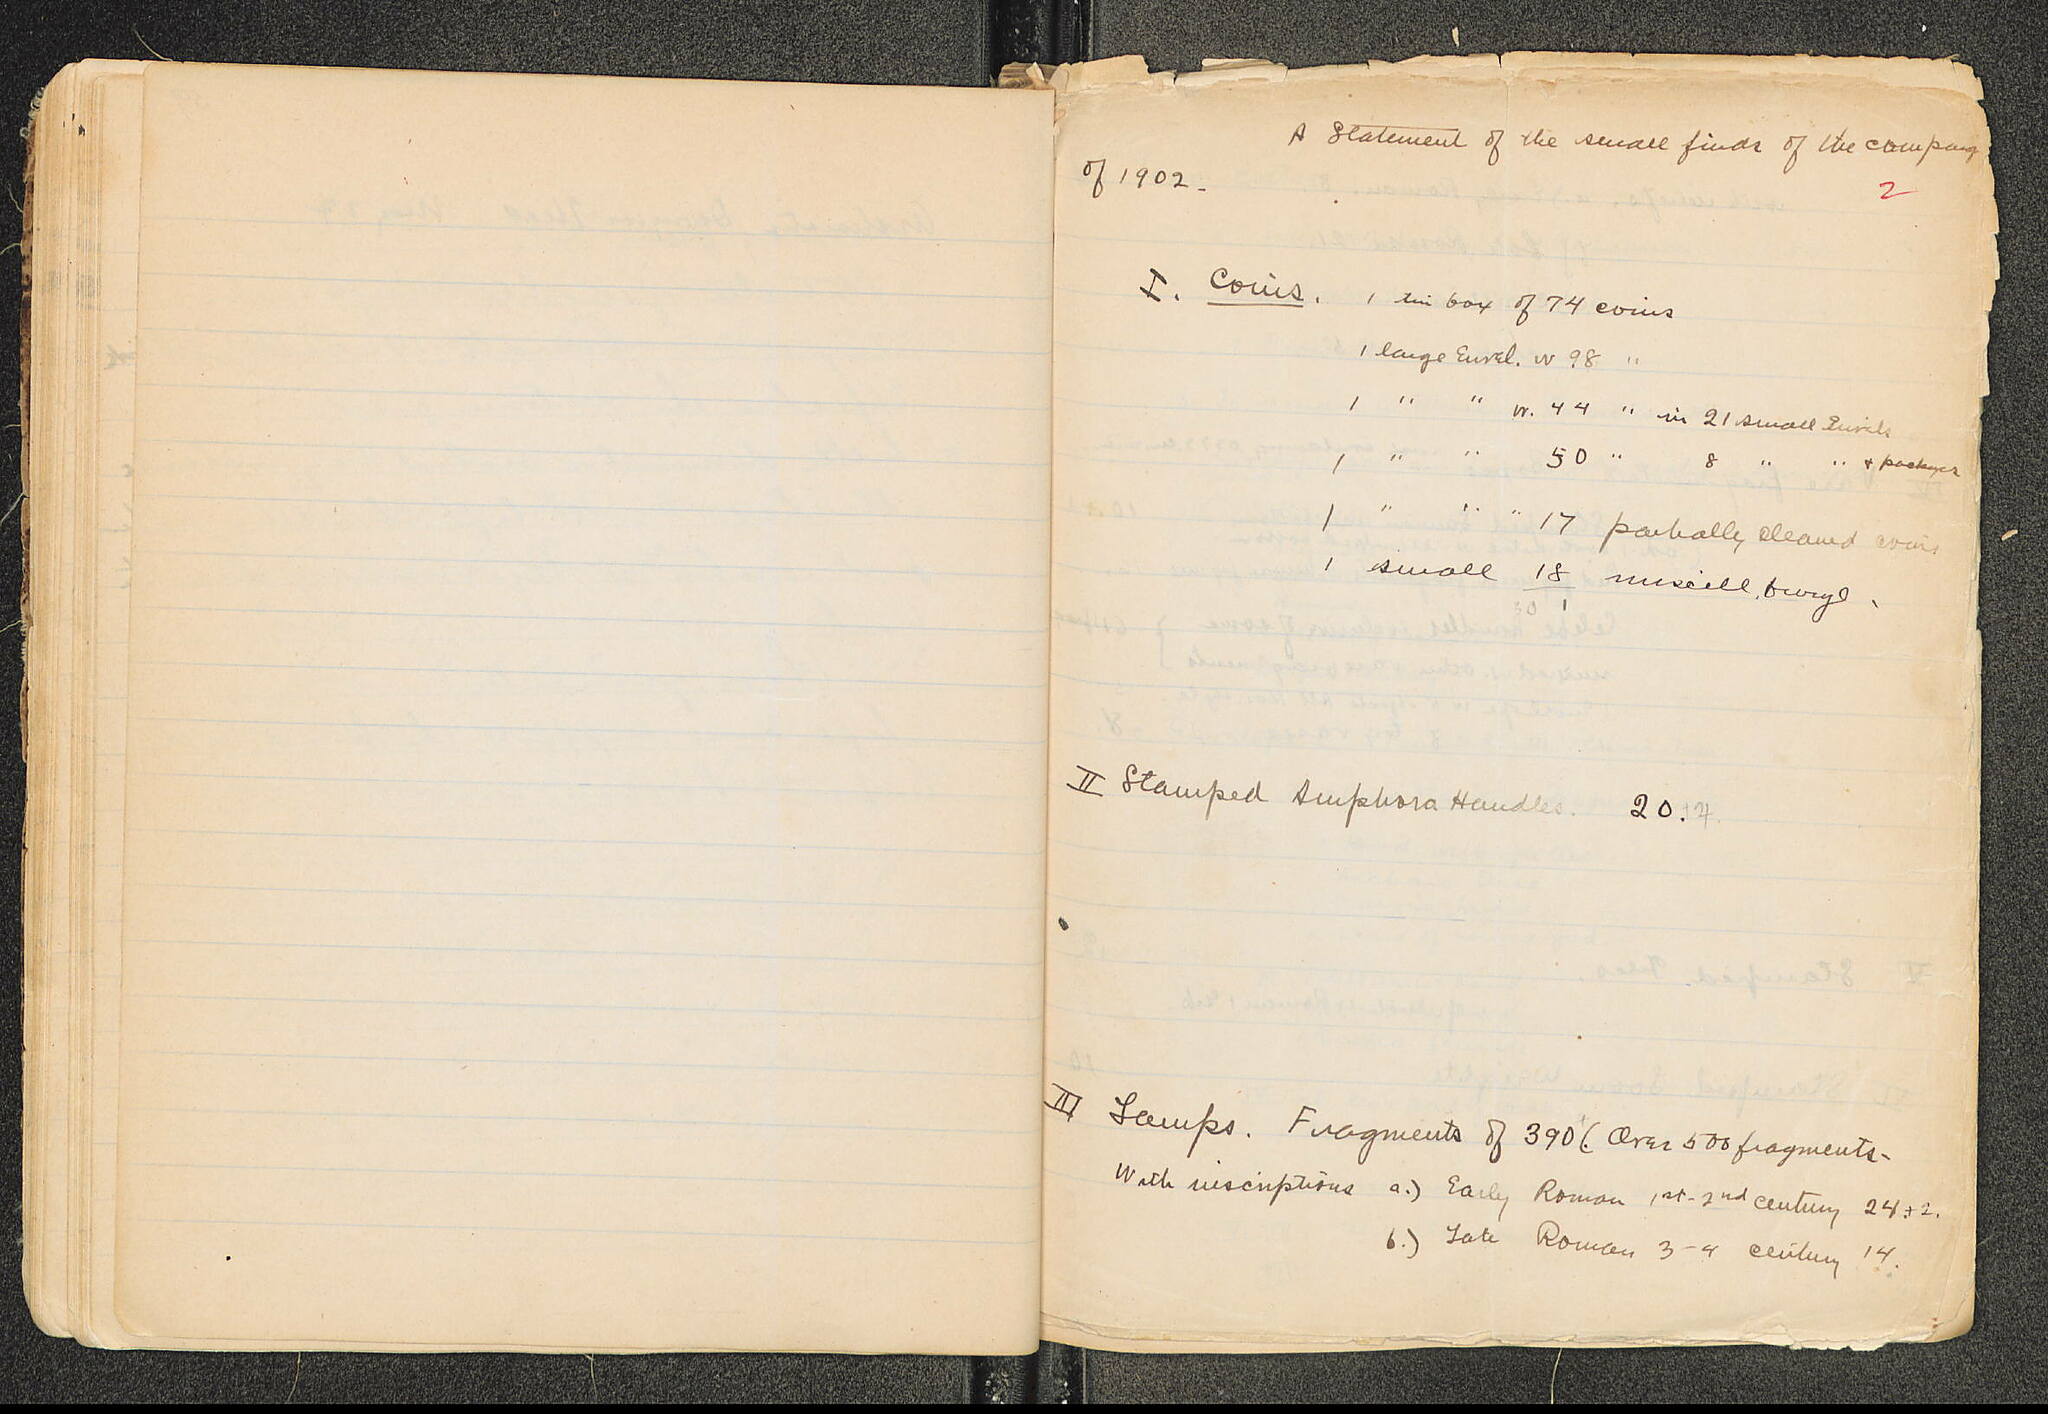 A Statement of the small finds of the campang
of 1902.
2
I. Coins. 1 tin box of 74 coins
1 large Envel. w 98 "
1 " " w. 44 " in 21 small Envels
1 " " 50 " 8 " " + packages
1 " " " 17 partially cleaned coins
1 small 18 miscell.
30 1
II Stamped Amphora Handles. 20.
III Lamps. Fragments of 390 (. Over 500 fragments-
With inscriptions a.) Early Roman 1st-2nd century 24+2.
b.) Late Roman 3-4 century 14.